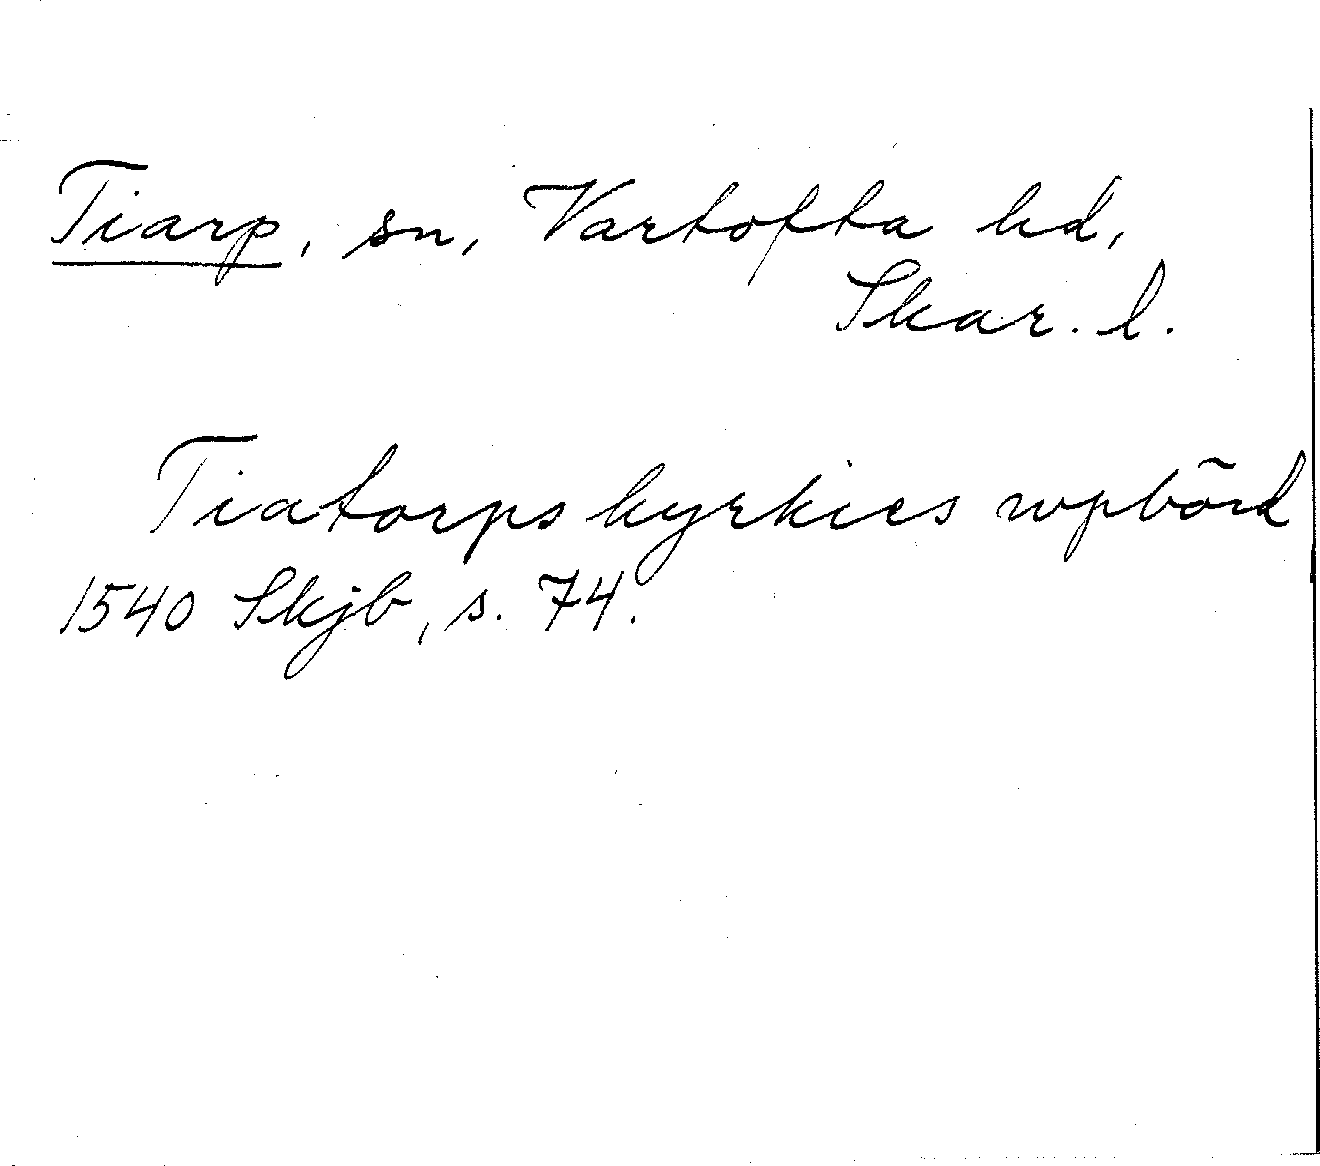 Tiarp, sn, Vartofta hd,
Skar. l.
Tiatorps kyrkies wpbörd
1540 Skjb, s. 74.